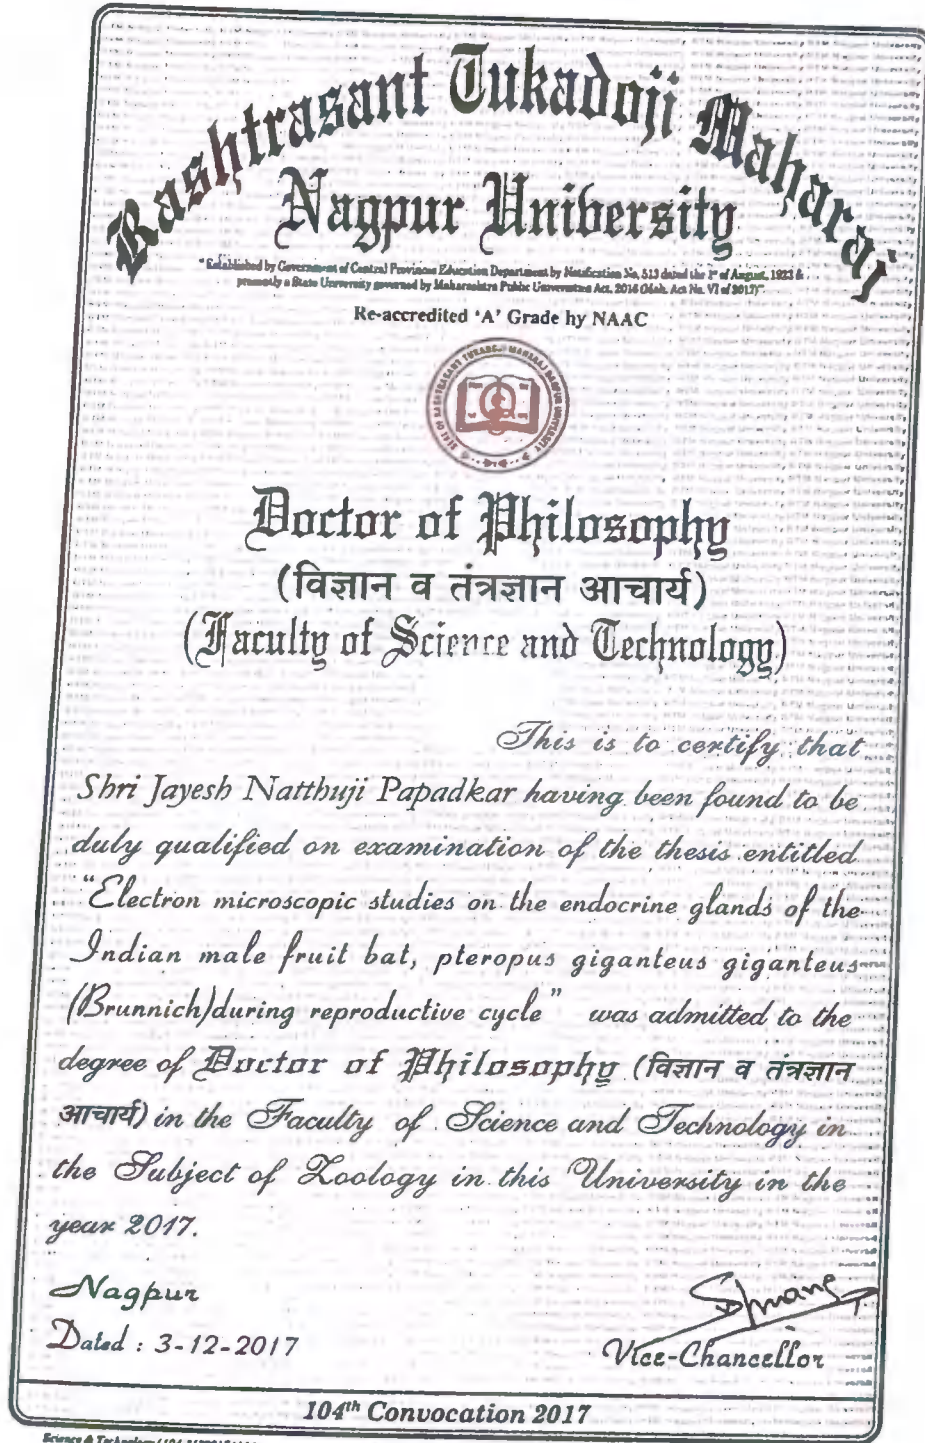 Rashtrasant Tukadoji Maharaj
Nagpur University
"Established by Government of Central Provinces Education Department by Notification No, 513 dated the 1st of August, 1923 &
presently a State University governed by Maharashtra Public Universities Act. 2016 (Mah. Act No. VI of 2017)"
Re-accredited 'A' Grade by NAAC
SEAL OF RASHTRASANT TUKADOJI MAHARAJ NAGPUR UNIVERSITY
Doctor of Philosophy
(विज्ञान व तंत्रज्ञान आचार्य)
(Faculty of Science and Technology)
This is to certify that
Shri Jayesh Natthuji Papadkar having been found to be
duly qualified on examination of the thesis entitled
"Electron microscopic studies on the endocrine glands of the
Indian male fruit bat, pteropus giganteus giganteus
(Brunnich)during reproductive cycle" was admitted to the
degree of Doctor of Philosophy (विज्ञान व तंत्रज्ञान
आचार्य) in the Faculty of Science and Technology in
the Subject of Zoology in this University in the
year 2017.
Nagpur
Dated : 3-12-2017
Vice-Chancellor
104th Convocation 2017
Science & Technology